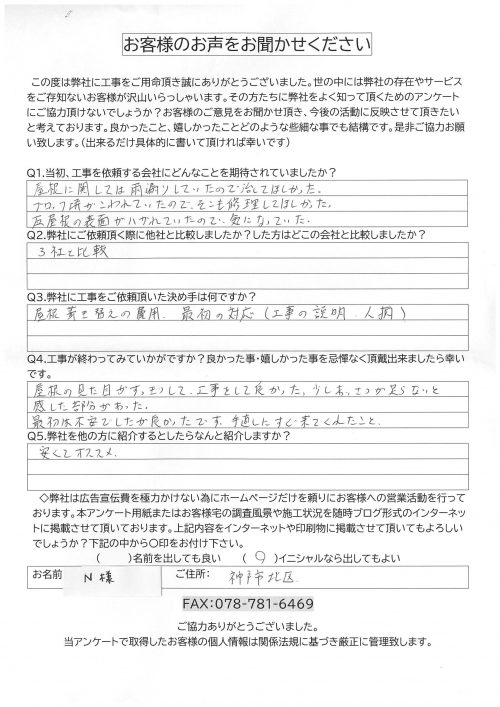 お客様のお声をお聞かせください
この度は弊社に工事をご用命頂き誠にありがとうございました。世の中には弊社の存在やサービス
をご存知ないお客様が沢山いらっしゃいます。その方たちに弊社をよく知って頂くためのアンケート
にご協力頂けないでしょうか？お客様のご意見をお聞かせ頂き、今後の活動に反映させて頂きたい
と考えております。良かったこと、嬉しかったことどのような些細な事でも結構です。是非ご協力お願
い致します。（出来るだけ具体的に書いて頂ければ幸いです）
Q1.当初、工事を依頼する会社にどんなことを期待されていましたか？
屋根に関しては雨漏りしていたので治してほしかった。
ブロック塀がこわれていたので、そこも修理してほしかった。
瓦屋根の表面がハガれていたので、気になっていた。
Q2.弊社にご依頼頂く際に他社と比較しましたか？した方はどこの会社と比較しましたか？
3社と比較
Q3.弊社に工事をご依頼頂いた決め手は何ですか？
屋根葺き替えの費用、最初の対応（工事の説明・人柄）
Q4.工事が終わってみていかがですか？良かった事・嬉しかった事を忌憚なく頂戴出来ましたら幸い
です。
屋根の見た目がすっきりして、工事をして良かった。少しあいさつが足らないと
感じた部分があった。
最初は不安でしたが良かったです。手直しにすぐ来てくれたこと。
Q5.弊社を他の方に紹介するとしたらなんと紹介しますか？
安くてオススメ
◇弊社は広告宣伝費を極力かけない為にホームページだけを頼りにお客様への営業活動を行って
おります。本アンケート用紙またはお客様宅の調査風景や施工状況を随時ブログ形式のインターネッ
トに掲載させて頂いております。上記内容をインターネットや印刷物に掲載させて頂いてもよろしい
でしょうか？下記の中から〇印をお付け下さい。
（　　）名前を出しても良い　（ ○ ）イニシャルなら出してもよい
お名前　N 様　ご住所：　神戸市北区
FAX:078-781-6469
ご協力ありがとうございました。
当アンケートで取得したお客様の個人情報は関係法規に基づき厳正に管理致します。